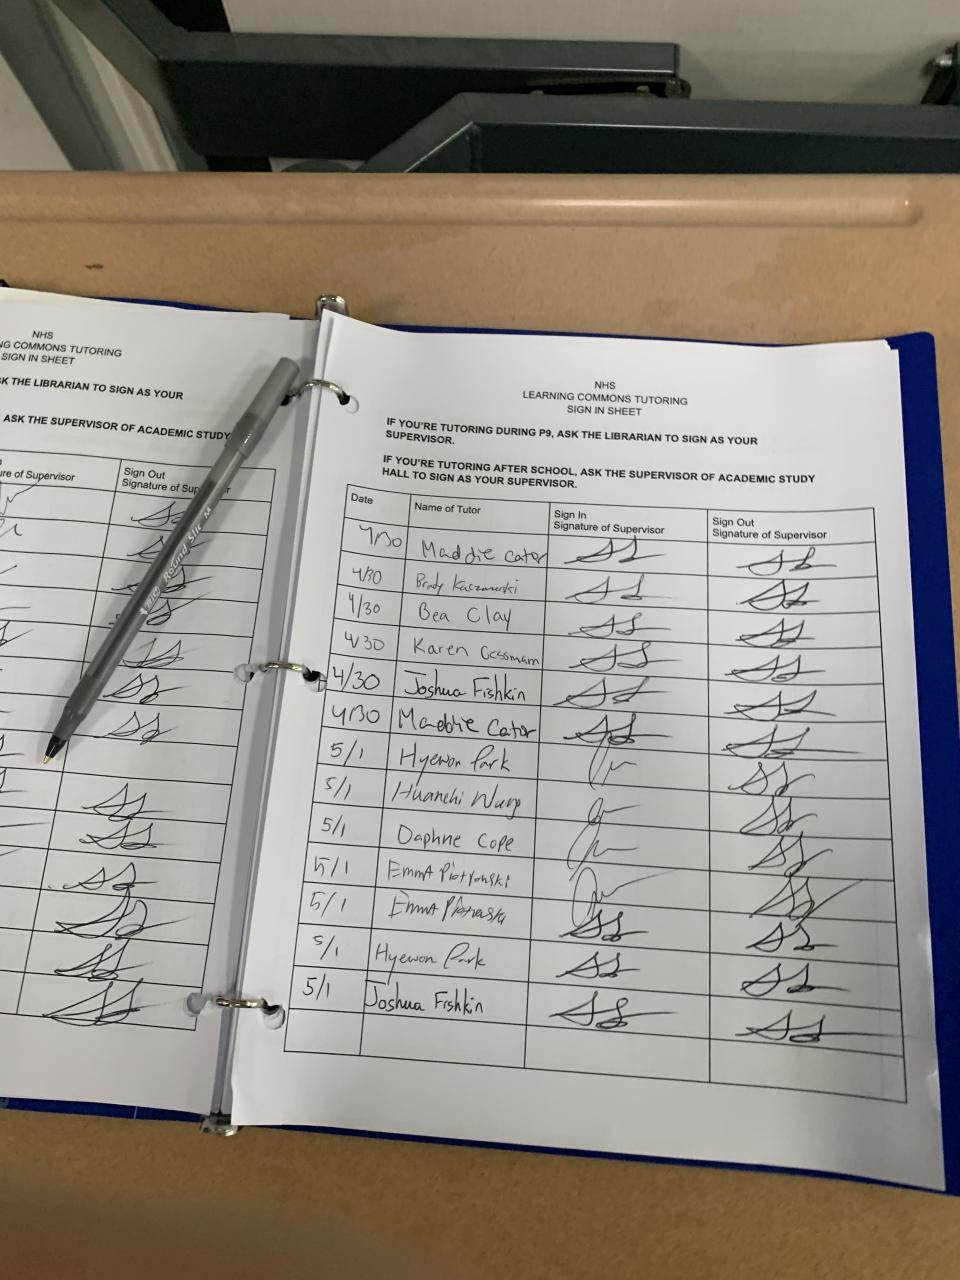 NHS
NG COMMONS TUTORING
SIGN IN SHEET
SK THE LIBRARIAN TO SIGN AS YOUR
ASK THE SUPERVISOR OF ACADEMIC STUDY
ure of Supervisor
Sign Out
Signature of
BIC Round Stic M
NHS
LEARNING COMMONS TUTORING
SIGN IN SHEET
IF YOU'RE TUTORING DURING P9, ASK THE LIBRARIAN TO SIGN AS YOUR
SUPERVISOR.
IF YOU'RE TUTORING AFTER SCHOOL, ASK THE SUPERVISOR OF ACADEMIC STUDY
HALL TO SIGN AS YOUR SUPERVISOR.
Date Name of Tutor Sign In Signature of Supervisor Sign Out Signature of Supervisor
4/30 Maddie Cator
4/30 Brady
4/30 Bea Clay
4/30 Karen
4/30 Joshua Fishkin
4/30 Maddie Cator
5/1 Hyewon Park
5/1
5/1 Daphne Cope
5/1 Emma
5/1 Emma
5/1 Hyewon Park
5/1 Joshua Fishkin